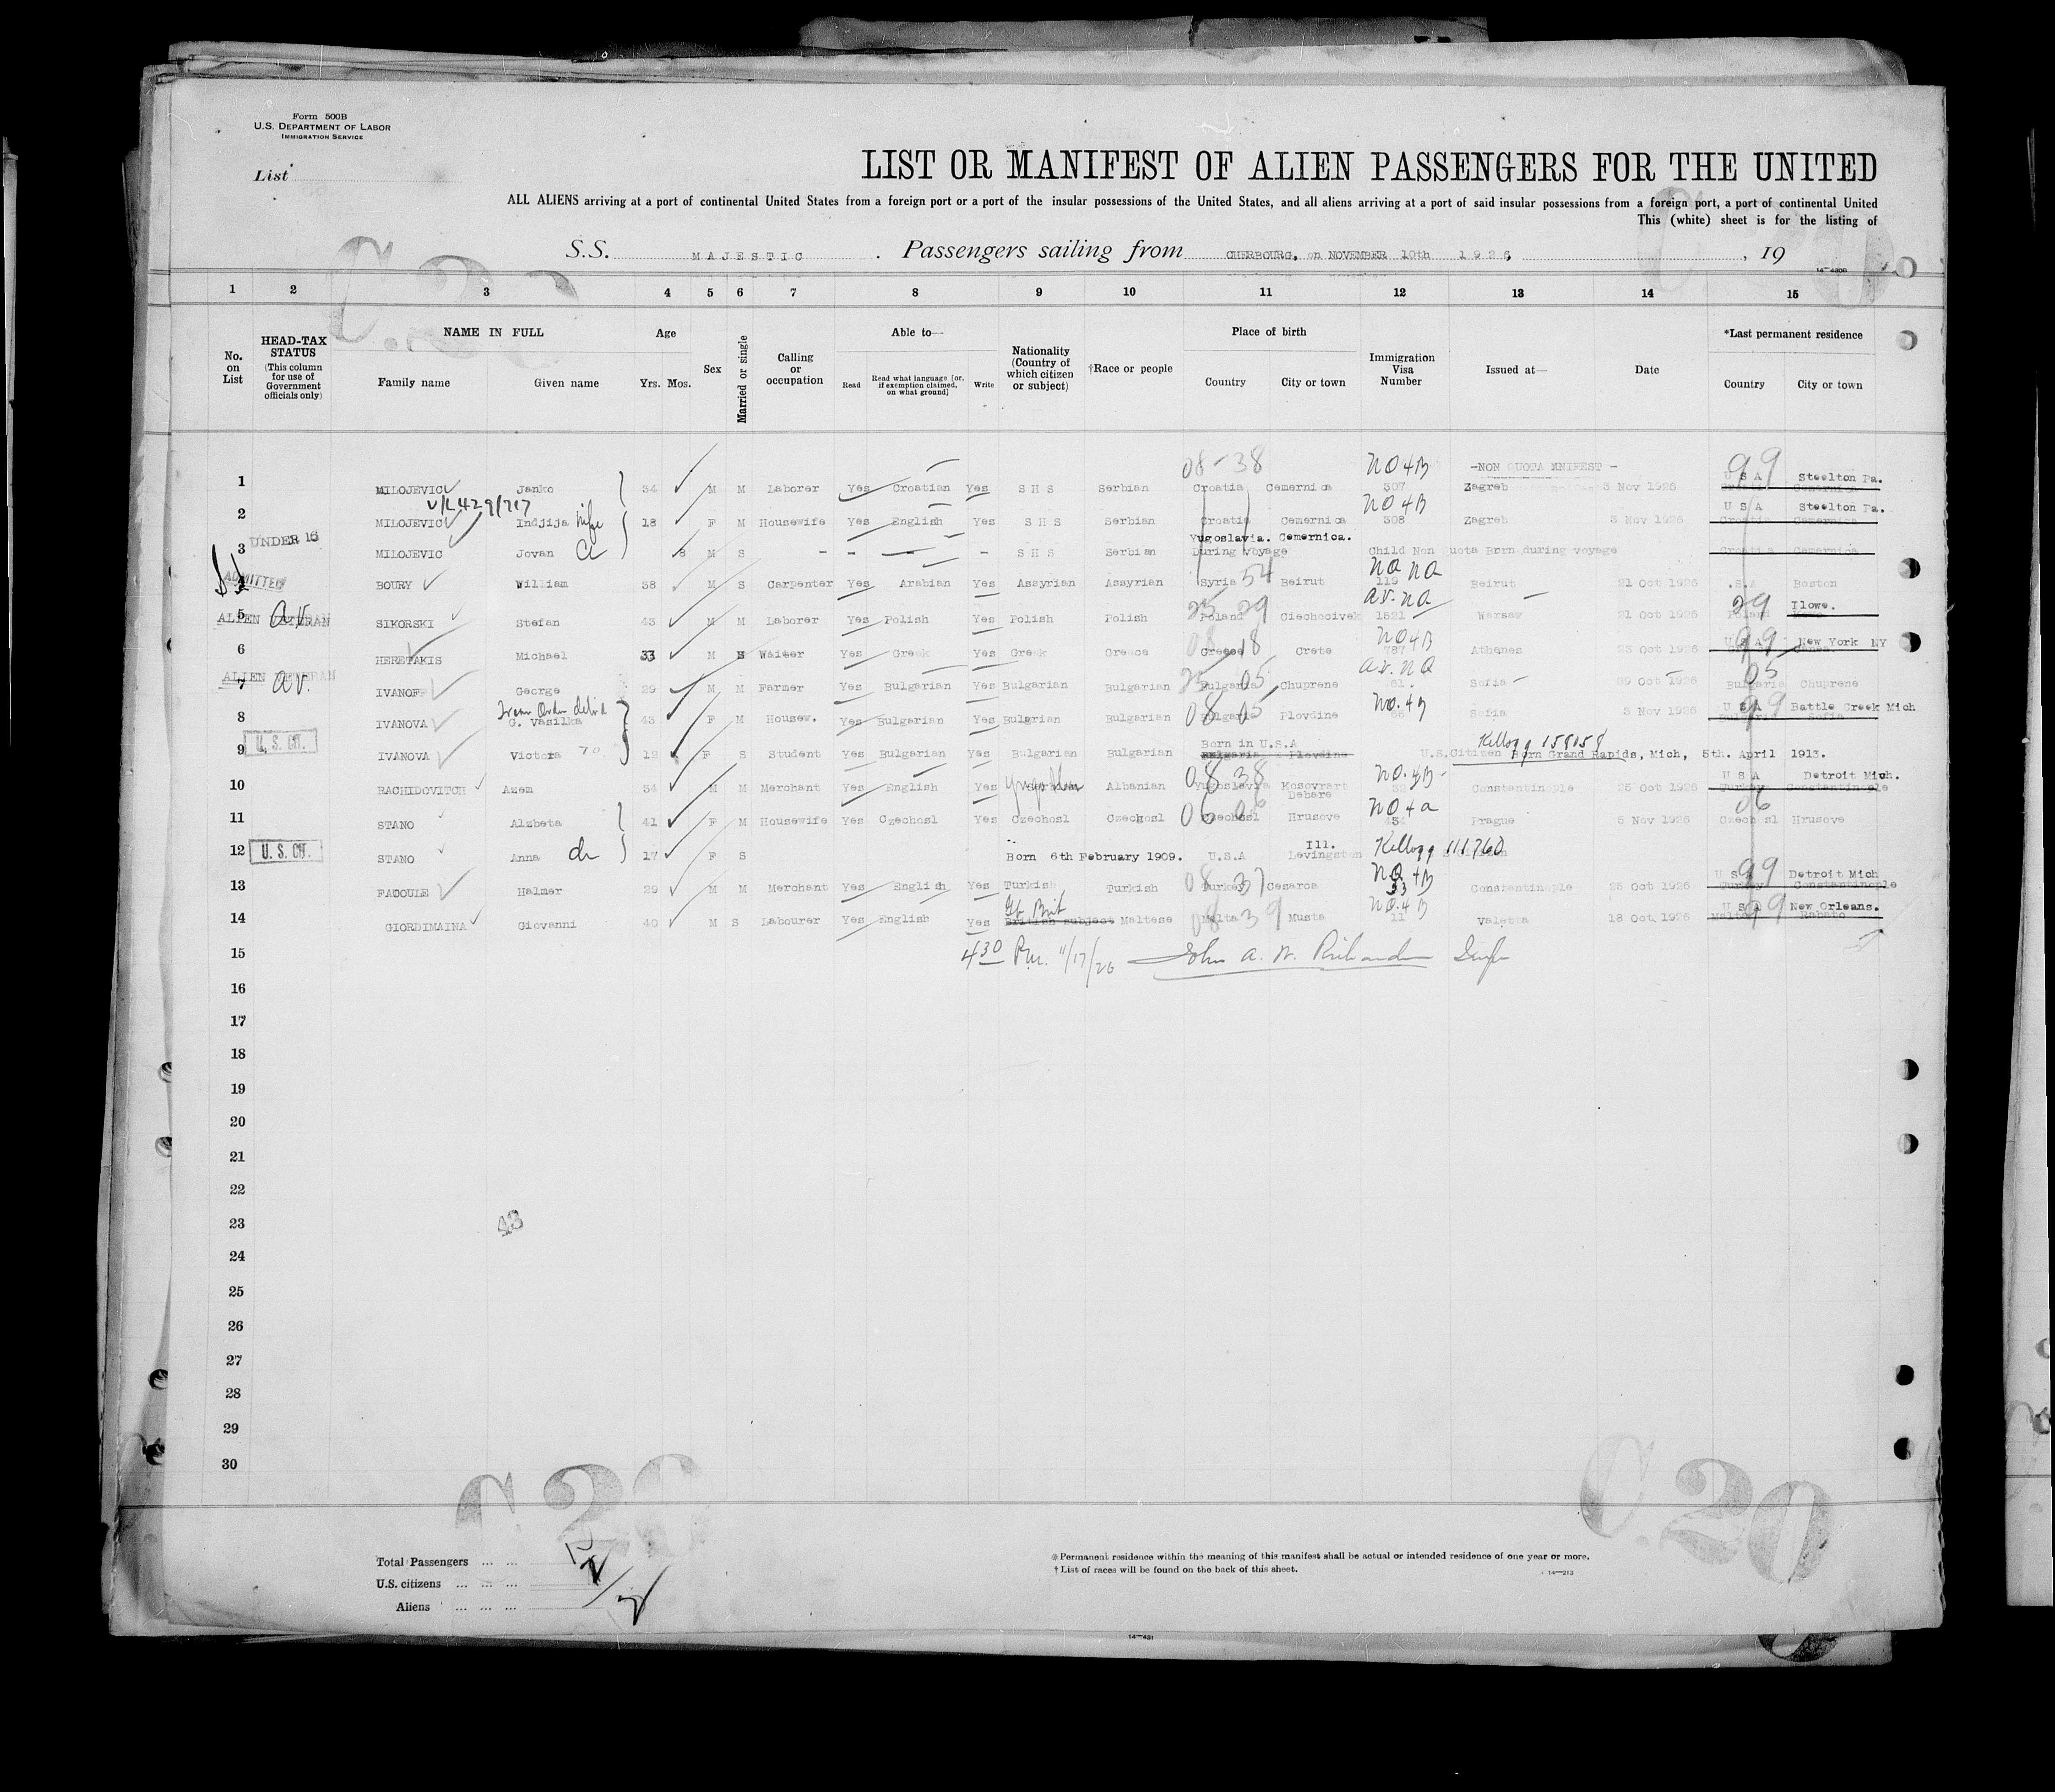 Form 500B
U.S. DEPARTMENT OF LABOR
IMMIGRATION SERVICE
List
LIST OR MANIFEST OF ALIEN PASSENGERS FOR THE UNITED
ALL ALIENS arriving at a port of continental United States from a foreign port or a port of the insular possessions of the United States, and all aliens arriving at a port of said insular possessions from a foreign port, a port of continental United
This (white) sheet is for the listing of
S.S. MAJESTIC . Passengers sailing from CHERBOURG, on NOVEMBER 10th 1926, , 19
14—4300
1 2 3 4 5 6 7 8 9 10 11 12 13 14 15
No. on List
HEAD-TAX STATUS (This column for use of Government officials only)
NAME IN FULL
Family name Given name
Age
Yrs. Mos.
Sex
Married or single
Calling or occupation
Able to—
Read
Read what language [or, if exemption claimed, on what ground]
Write
Nationality (Country of which citizen or subject)
†Race or people
Place of birth
Country City or town
Immigration Visa Number
Issued at—
Date
*Last permanent residence
Country City or town
08-38 NO4B -NON QUOTA MNIFEST - 99
1 MILOJEVIC Janko 34 M M Laborer Yes Croatian Yes S H S Serbian Croatia Cemernica 307 Zagreb 3 Nov 1926 U S A Steelton Pa.
V/L 429/717 NO4B
2 MILOJEVIC Indjija wife 18 F M Housewife Yes English Yes S H S Serbian Croatia Cemernica 308 Zagreb 3 Nov 1926 U S A Steelton Pa.
UNDER 16 Yugoslavia. Cemernica.
3 MILOJEVIC Jovan 8 M S - - - - S H S Serbian During Voyage Child Non Quota Born during voyage Croatia Cemernica
ADMITTED NQ NQ
4 BOURY William 38 M S Carpenter Yes Arabian Yes Assyrian Assyrian Syria 54 Beirut 119 Beirut 21 Oct 1926 .S.A Boston
ALIEN VETERAN A.V. av. na
5 SIKORSKI Stefan 43 M M Laborer Yes Polish Yes Polish Polish 25 Poland 29 Ciechocivek 1521 Warsaw 21 Oct 1926 29 Poland Ilowe.
NO4B
6 HERETAKIS Michael 33 M S Waiter Yes Greek Yes Greek Greece 08 Greece 18 Crete 787 Athenes 23 Oct 1926 U S A 99 New York NY
ALIEN VETERAN av. av. na
7 IVANOFF George 29 M M Farmer Yes Bulgarian Yes Bulgarian Bulgarian 25 Bulgaria 05 Chuprene 61. Sofia 30 Oct 1926 05 Bulgaria Chuprene
No. 4B
8 IVANOVA G. Vasilka 43 F M Housew. Yes Bulgarian Yes Bulgarian Bulgarian 08 Bulgaria 05 Plovdine 66 Sofia 3 Nov 1926 U S A 99 Battle Creek Mich
U. S. CIT. Born in U.S.A Kellogg 158058
9 IVANOVA Victora 12 F S Student Yes Bulgarian Yes Bulgarian Bulgarian Bulgaria Plovdine U.S.Citizen Born Grand Rapids, Mich, 5th. April 1913.
NO.4B
10 RACHIDOVITCH Azem 34 M M Merchant Yes English Yes Albanian 08 Yugoslavia 38 Kosovrast Debare 32 Constantinople 25 Oct 1926 U S A Detroit Mich. Turkey Constantinople
NO4a 06
11 STANO Alzbeta 41 F M Housewife Yes Czechosl Yes Czechosl Czechosl 06 Czechosl 06 Hrusove 454 Prague 5 Nov 1926 Czechosl Hrusove
U. S. CIT. Ill. Kellogg 111760
12 STANO Anna 17 F S Born 6th February 1909. U.S.A Levingston
NO 4B
13 FACOULE Halmer 29 M M Merchant Yes English Yes Turkish Turkish 08 Turkey 37 Cesaroa 33 Constantinople 25 Oct 1926 U S A 99 Detroit Mich Turkey Constantinople
Gt Brit NO.4B
14 GIORDIMAINA Giovanni 40 M S Labourer Yes English Yes British subject Maltese 08 Malta 39 Musta 11 Valetta 18 Oct 1926 U S A 99 New Orleans. Malta Rabato
15 4 30 P.m. 11/17/26 John A. W. Richardson Insp
16
17
18
19
20
21
22
23
43
24
25
26
27
28
29
30
C.26
C.20
Total Passengers ... ...
U.S. citizens ... ... ...
Aliens ... ... ...
*Permanent residence within the meaning of this manifest shall be actual or intended residence of one year or more.
†List of races will be found on the back of this sheet.
14—213
14—431